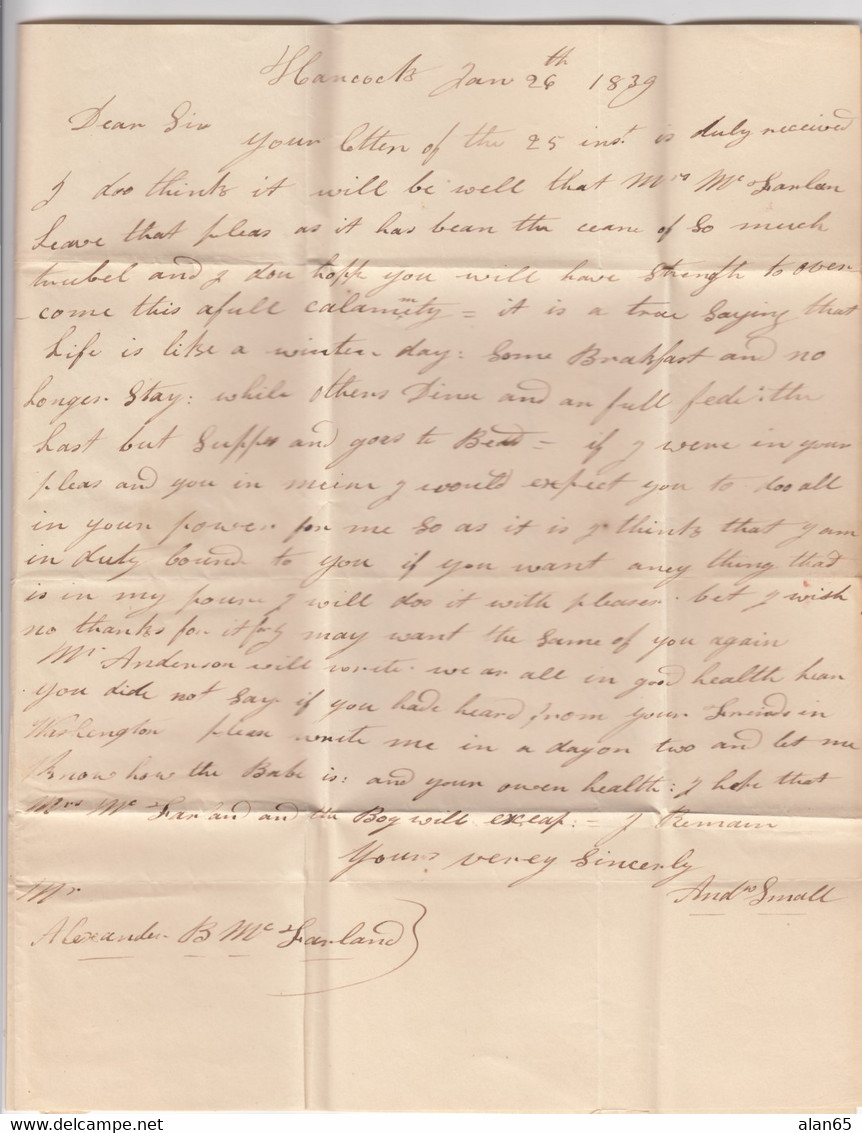 Hancock Jan 26th 1839
Dear Sir
your letter of the 25 inst. is duly received
I doo think it will be well that Mrs Mc Farlan
leave that pleas as it has bean the ceane of So much
trubel and I dou hope you will have Strength to over-
come this afull calamity = it is a true Saying that
Life is like a winter day: Some Brakfast and no
longer Stay: while others Dine and ar full fede: the
Last but Supps and goes to Bead = if I were in your
pleas and you in meine I would expect you to doo all
in your power for me So as it is I think that I am
in duty bound to you if you want aney thing that
is in my power I will doo it with pleaser. bet I wish
no thanks for it for I may want the Same of you again
Mr Anderson will write. we ar all in good health hear
you dide not Say if you hade heard from your Freinds in
Washengton pleas write me in a day or two and let me
know how the Babe is: and your owen health: I hope that
Mrs Mc Farland and the Boy will exeap: = I Remain
Yours verey Sincerly
Andw Small
Mr
Alexander B Mc Farland
alan65